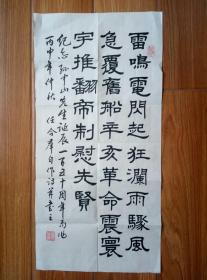 雷鳴電閃起狂瀾雨驟風
急覆舊船辛亥革命震寰
宇推翻帝制慰先賢
紀念孫中山先生誕辰一百五十周年
丙申年仲秋 任合羣自作詩并書之